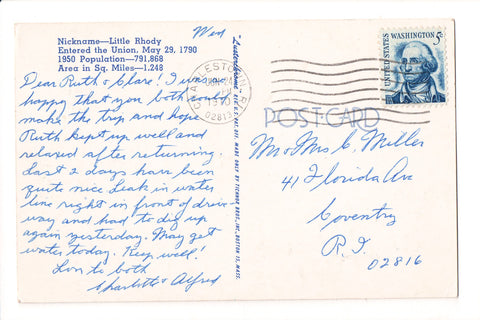 Wed
Nickname—Little Rhody
Entered the Union, May 29, 1790
1950 Population—791,868
Area in Sq. Miles—1,248
Dear Ruth & Clare! I was so
happy that you both could
make the trip and hope
Ruth kept up well and
relaxed after returning.
Last 2 days have been
quite nice Leak in water
line right in front of drive
way and had to dig up
again yesterday. May get
water today. Keep well!
Love to both
Charlotte & Alfred
MADE ONLY BY TICHNOR BROS., INC., BOSTON 15, MASS.
R.I.
02813
UNITED STATES
WASHINGTON 5c
POST CARD
Mr & Mrs C. Miller
41 Florida Ave
Coventry
R.I.
02816